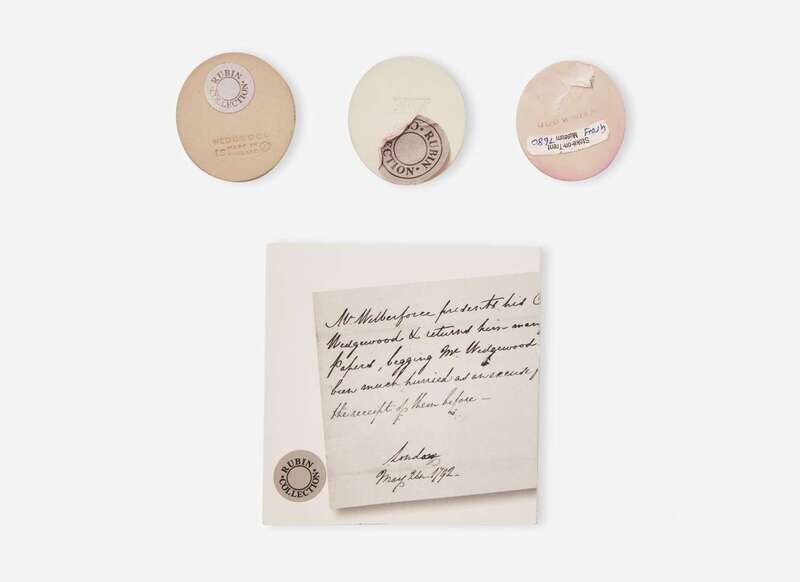 RUBIN COLLECTION
WEDGWOOD
MADE IN
ENGLAND
RUBIN
Stoke-on-Trent
Museum 7680
Mr Wilberforce presents his C
Wedgewood & returns him many
Papers, begging Mr Wedgewood
been much hurried as an excuse
the receipt of them before —
Sunday
May 1792
RUBIN COLLECTION